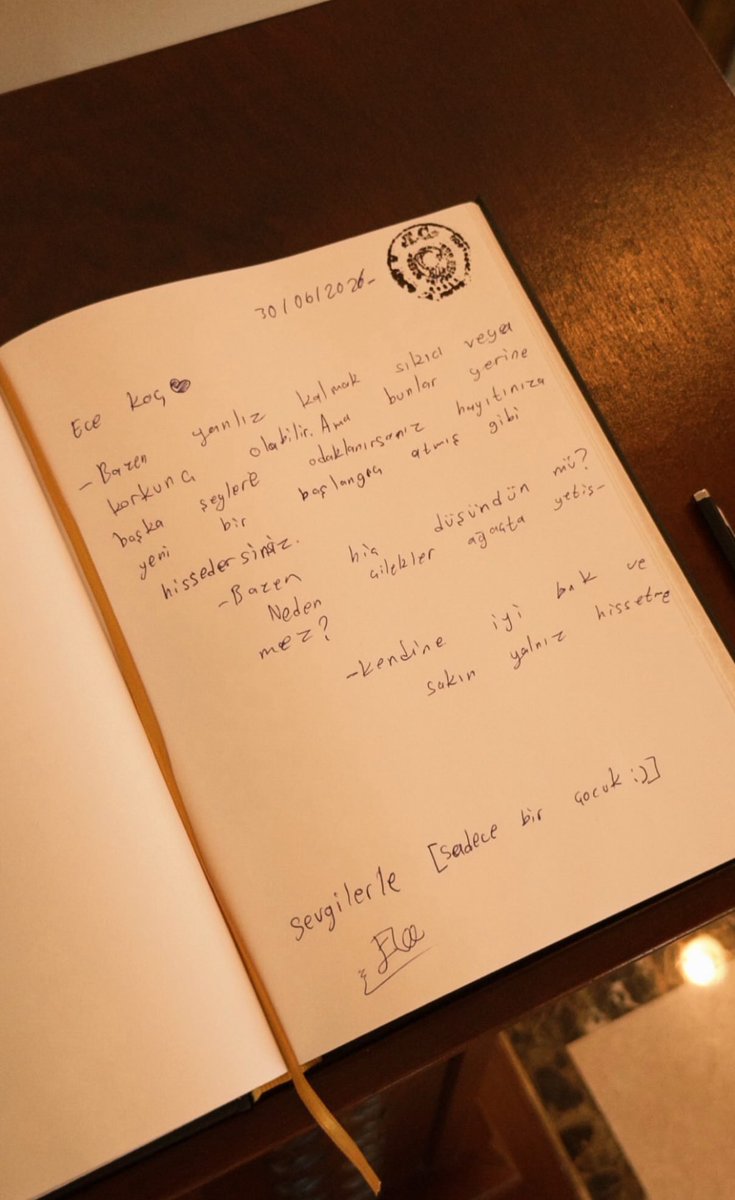 30/06/2026-
T.C.
Ece Koç
-Bazen yanlız kalmak sıkıcı veya
korkunç olabilir. Ama bunlar yerine
başka şeylere odaklanırsanız hayıtınıza
yeni bir başlangıç atmış gibi
hissedersiniz.
-Bazen hiç düşündün mü?
Neden çilekler ağaçta yetiş-
mez?
-kendine iyi bak ve
sakın yalnız hissetme
sevgilerle [sadece bir çocuk :)]
Ece